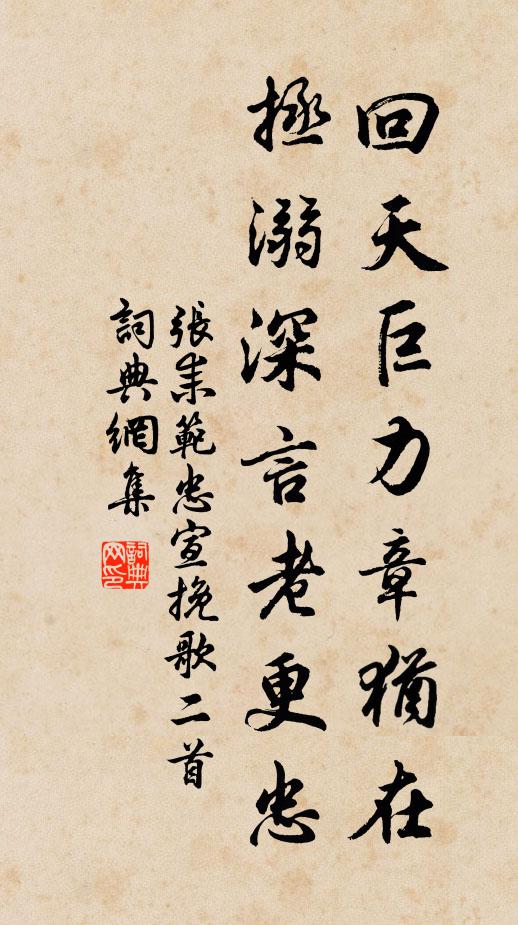 回天巨力章猶在
拯溺深言老更忠
張耒範忠宣挽歌二首
詞典網集
詞典網印